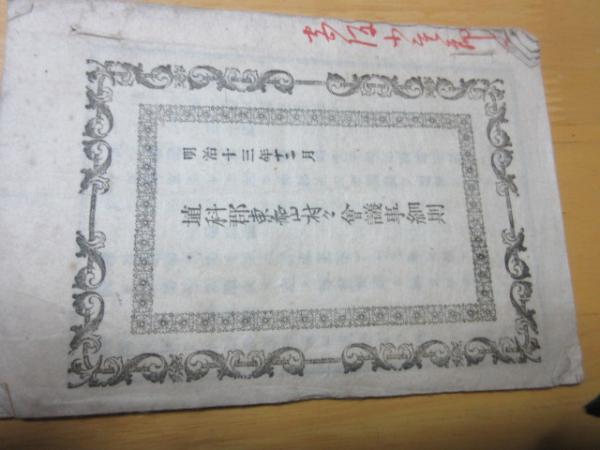 明治十三年十二月
埴科郡東船山村々會議事細則